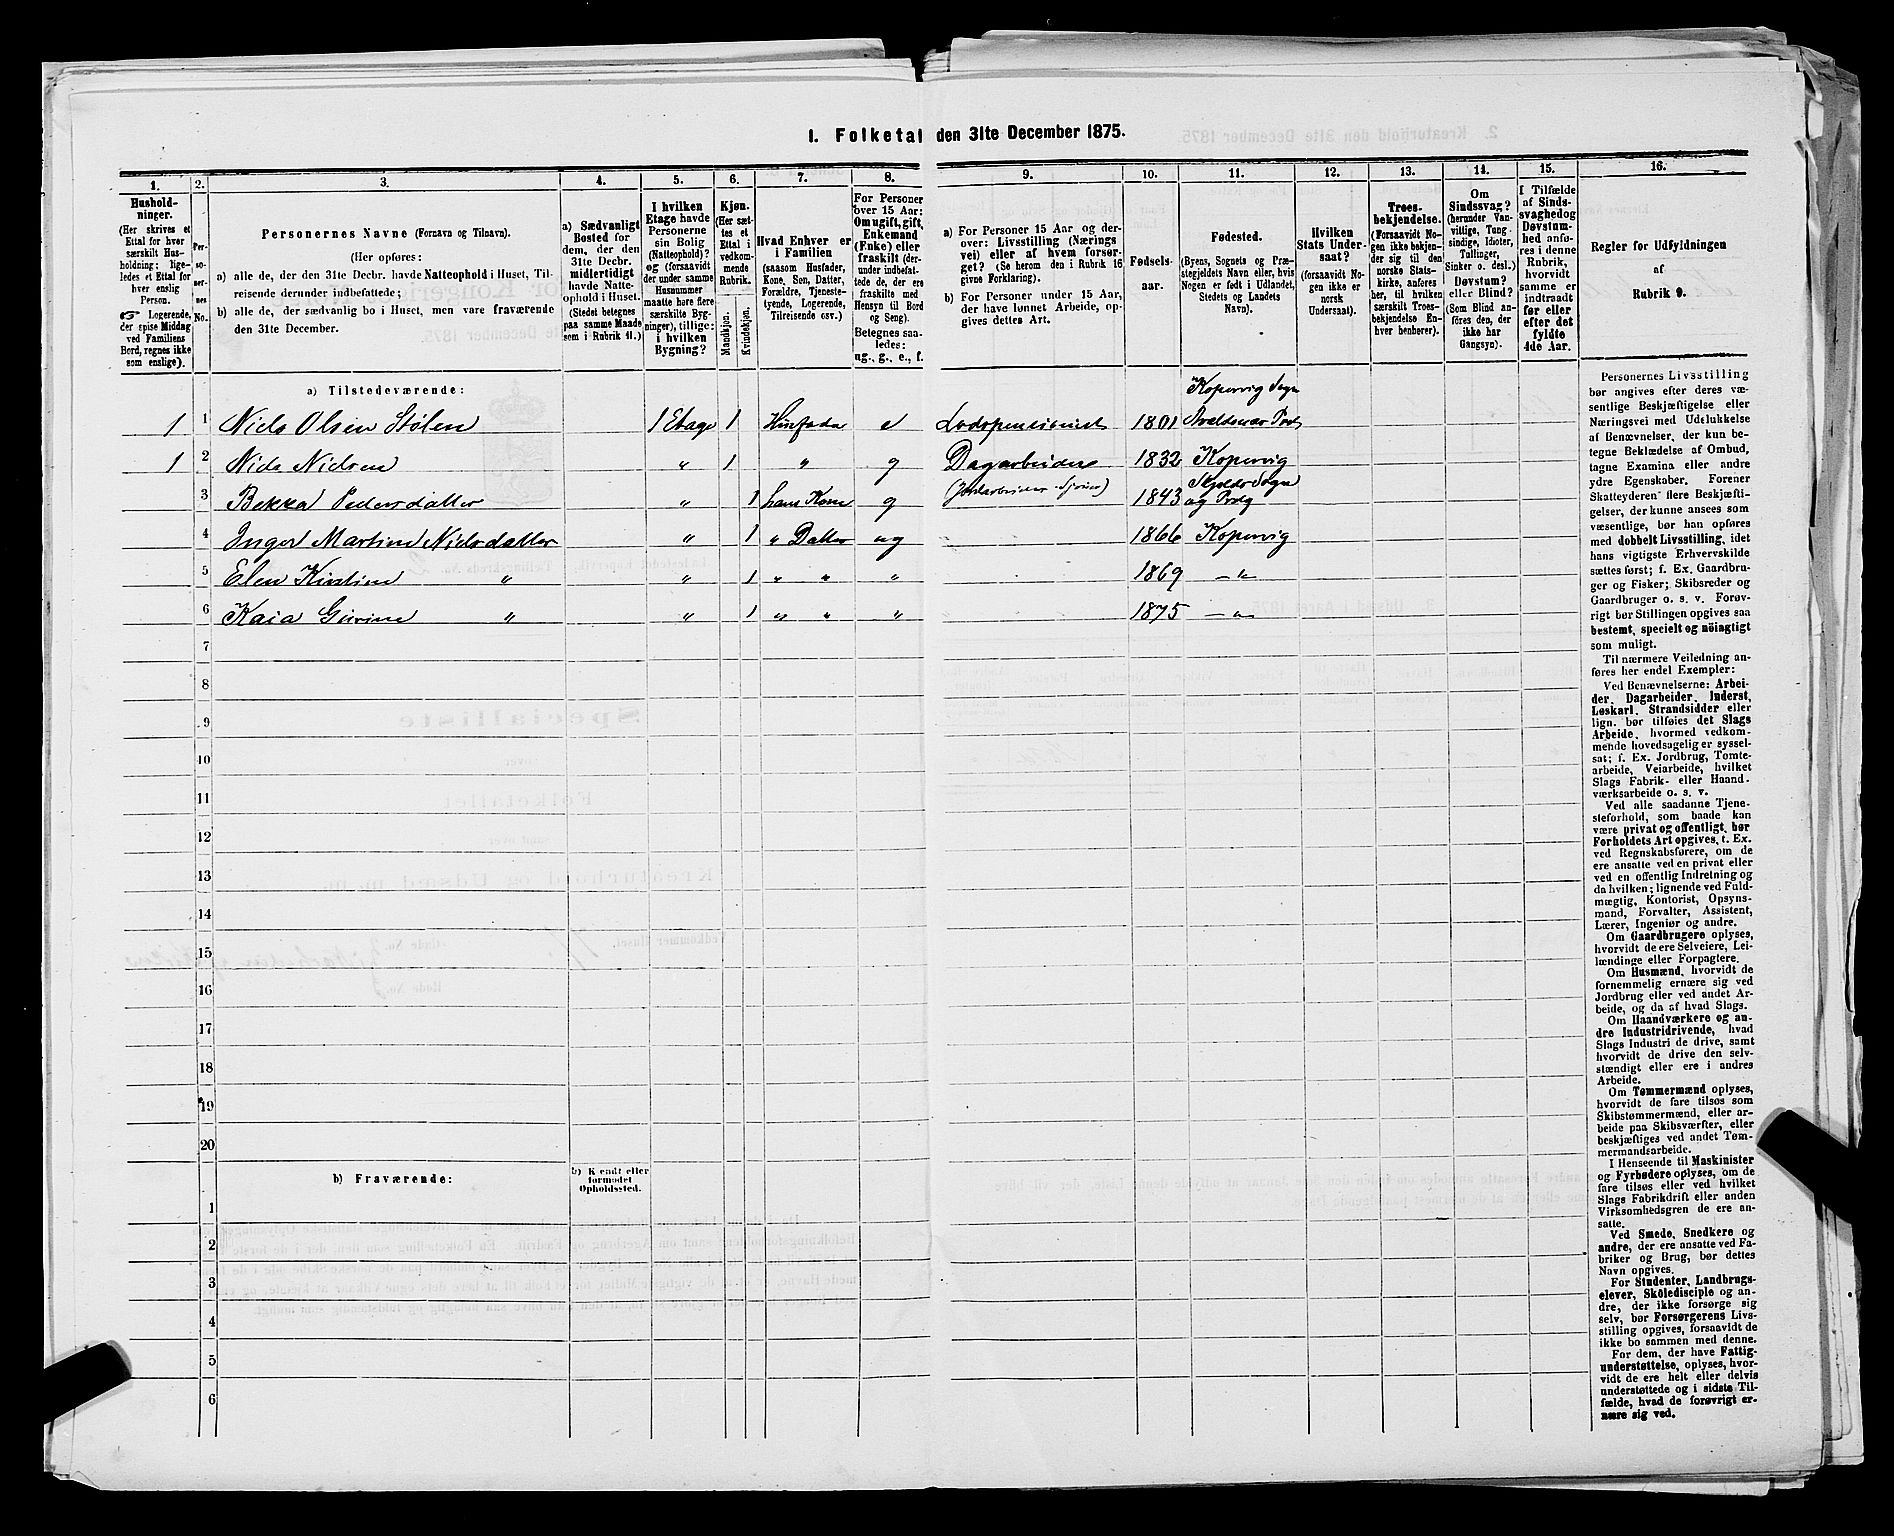 1. Folketal den 31te December 1875.
1. 2. 3. 4. 5. 6. 7. 8. 9. 10. 11. 12. 13. 14. 15. 16.
Hushold-
ninger.
(Her skrives et
Ettal for hver
særskilt Hus-
holdning; lige-
ledes et Ettal for
hver enslig
Person.
☞ Logerende,
der spise Middag
ved Familiens
Bord, regnes ikke
som enslige).
Per-
so-
ner-
nes
No.
Personernes Navne (Fornavn og Tilnavn).
(Her opføres:
a) alle de, der den 31te Decbr. havde Natteophold i Huset, Til-
reisende derunder indbefattede;
b) alle de, der sædvanlig bo i Huset, men vare fraværende
den 31te December.
a) Sædvanligt
Bosted for
dem, der den
31te Decbr.
midlertidigt
havde Natte-
ophold i Huset.
(Stedet betegnes
paa samme Maade
som i Rubrik 11.)
I hvilken
Etage havde
Personerne
sin Bolig
(Natteophold)?
og (forsaavidt
der under samme
Husnummer
maatte høre flere
særskilte Byg-
ninger), tillige:
i hvilken
Bygning?
Kjøn.
(Her sæt-
tes et
Ettal i
vedkom-
mende
Rubrik.
Mandkjøn.
Kvindekjøn.
Hvad Enhver er
i Familien
(saasom Husfader,
Kone, Søn, Datter,
Forældre, Tjeneste-
tyende, Logerende,
Tilreisende osv.)
For Personer
over 15 Aar:
Om ugift, gift,
Enkemand
(Enke) eller
fraskilt (der-
under indbefat-
tede de, der ere
fraskilte med
Hensyn til Bord
og Seng).
Betegnes saa-
ledes:
ug., g., e., f.
a) For Personer 15 Aar og der-
over: Livsstilling (Nærings
vei) eller af hvem forsør-
get? (Se herom den i Rubrik 16
givne Forklaring).
b) For Personer under 15 Aar,
der have lønnet Arbeide, op-
gives dettes Art.
Fødsels-
aar.
Fødested.
(Byens, Sognets og Præ-
stegjeldets Navn eller, hvis
Nogen er født i Udlandet,
Stedets og Landets
Navn).
Hvilken
Stats Under-
saat?
(forsaavidt No-
gen ikke er
norsk
Undersaat).
Troes-
bekjendelse.
(Forsaavidt No-
gen ikke bekjen-
der sig til den
norske Stats-
kirke, anføres
her, til hvilken
særskilt Troes-
bekjendelse En-
hver henhører).
Om
Sindssvag?
(herunder Van-
vittige, Tung-
sindige, Idioter,
Tullinger,
Sinker o. desl.)
Døvstum?
eller Blind?
(Som Blind an-
føres den, der
ikke har
Gangsyn).
I Tilfælde
af Sinds-
svaghed og
Døvstum-
hed anfø-
res i denne
Rubrik,
hvorvidt
samme er
indtraadt
før eller
efter det
fyldte
4de Aar.
Regler for Udfyldningen
af
Rubrik 9.
a) Tilstedeværende:
Kopervig Sogn
1 1 Niels Olsen Stølen 1 Etage 1 Husfader e Lodspensionist 1801 Avaldsnæs Prd
1 2 Niels Nielsen " 1 " g Dagarbeider 1832 Kopervig
3 Bekka Pedersdatter " 1 hans Kone g (Jordarbeider) 1843 Skjolds Sogn og Prdg
4 Inger Martine Nielsdatter " 1 " Datter ug 1866 Kopervig
5 Elen Kirstine " " 1 " " " 1869 - " -
6 Kaia Gurine " " 1 " " " 1875 - " -
7
8
9
10
11
12
13
14
15
16
17
18
19
20
b) Fraværende:
b) Kjendt eller
formodet
Opholdssted.
1
2
3
4
5
6
Personernes Livsstilling
bør angives efter deres væ-
sentlige Beskjæftigelse eller
Næringsvei med Udelukkelse
af Benævnelser, der kun be-
tegne Beklædelse af Ombud,
tagne Examina eller andre
ydre Egenskaber. Forener
Skatteyderen flere Beskjæfti-
gelser, der kunne ansees som
væsentlige, bør han opføres
med dobbelt Livsstilling, idet
hans vigtigste Erhvervskilde
sættes først; f. Ex. Gaardbru-
ger og Fisker; Skibsreder og
Gaardbruger o. s. v. Forøv-
rigt bør Stillingen opgives saa
bestemt, specielt og nöiagtigt
som muligt.
Til nærmere Veiledning an-
føres her endel Exempler:
Ved Benævnelserne: Arbei-
der, Dagarbeider, Inderst,
Løskarl, Strandsidder eller
lign. bør tilføies det Slags
Arbeide, hvormed vedkom-
mende hovedsagelig er syssel-
sat; f. Ex. Jordbrug, Tomte-
arbeide, Veiarbeide, hvilket
Slags Fabrik- eller Haand-
værksarbeide o. s. v.
Ved alle saadanne Tjene-
steforhold, som baade kan
være privat og offentligt, bør
Forholdets Art opgives, t. Ex.
ved Regnskabsførere, om de
ere ansatte ved en privat eller
ved en offentlig Indretning og
da hvilken; lignende ved Fuld-
mægtig, Kontorist, Opsyns-
mand, Forvalter, Assistent,
Lærer, Ingeniør og andre.
Om Gaardbrugere oplyses,
hvorvidt de ere Selveiere, Lei-
lændinge eller Forpagtere.
Om Husmænd, hvorvidt de
fornemmelig ernære sig ved
Jordbrug eller ved andet Ar-
beide, og da af hvad Slags.
Om Haandværkere og an-
dre Industridrivende, hvad
Slags Industri de drive, samt
hvorvidt de drive den selv-
stændigt eller ere i andres
Arbeide.
Om Tømmermænd oplyses,
hvorvidt de fare tilsøs som
Skibstømmermænd, eller ar-
beide paa Skibsværfter, eller
beskjæftiges ved andet Tøm-
mermandsarbeide.
I Henseende til Maskinister
og Fyrbødere oplyses, om de
fare tilsøs eller ved hvilket
Slags Fabrikdrift eller anden
Virksomhedsgren de ere an-
satte.
Ved Smede, Snedkere og
andre, der ere ansatte ved Fa-
briker og Brug, bør dettes
Navn opgives.
For Studenter, Landbrugs-
elever, Skoledisciple og an-
dre, der ikke forsørge sig
selv, bør Forsørgerens Livs-
stilling opgives, forsaavidt de
ikke bo sammen med denne.
For dem, der have Fattig-
understøttelse, oplyses, hvor-
vidt de ere helt eller delvis
understøttede og i sidste Til-
fælde, hvad de forøvrigt er-
nære sig ved.